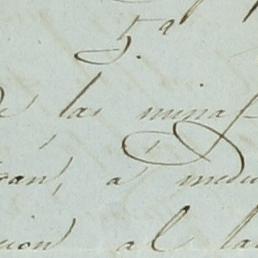 5.ª
de las minas
ran, á medi
cion al la